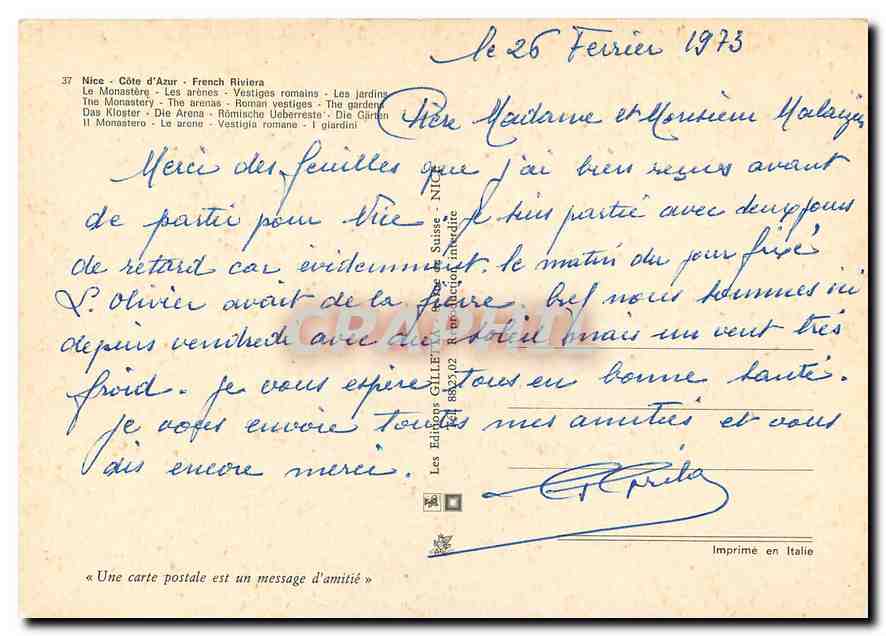 le 26 Ferrier 1973
37 Nice - Côte d'Azur - French Riviera
Le Monastère - Les arènes - Vestiges romains - Les jardins
The Monastery - The arenas - Roman vestiges - The gardens
Das Kloster - Die Arena - Römische Ueberreste - Die Gärten
Il Monastero - Le arone - Vestigia romane - I giardini
Chère Madame et Monsieur
Merci des feuilles que j'ai bien reçues avant
de partir pour Nice. je suis partie avec deux jours
de retard car évidemment. le matin du jour fixé
L. olivier avait de la fièvre. bref nous sommes ici
depuis vendredi avec du soleil mais un vent très
froid. je vous espère tous en bonne santé.
je vous envoie toutes mes amitiés et vous
dis encore merci.
Les Editions GILLETTA rue de Suisse - NICE
Tél. 88.25.02 Reproduction interdite
CPARAMA
Imprimé en Italie
« Une carte postale est un message d'amitié »